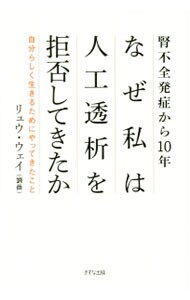 腎不全発症から10年
なぜ私は
人工透析を
拒否してきたか
自分らしく生きるためにやってきたこと
リュウ・ウェイ
(劉薇)
きずな出版